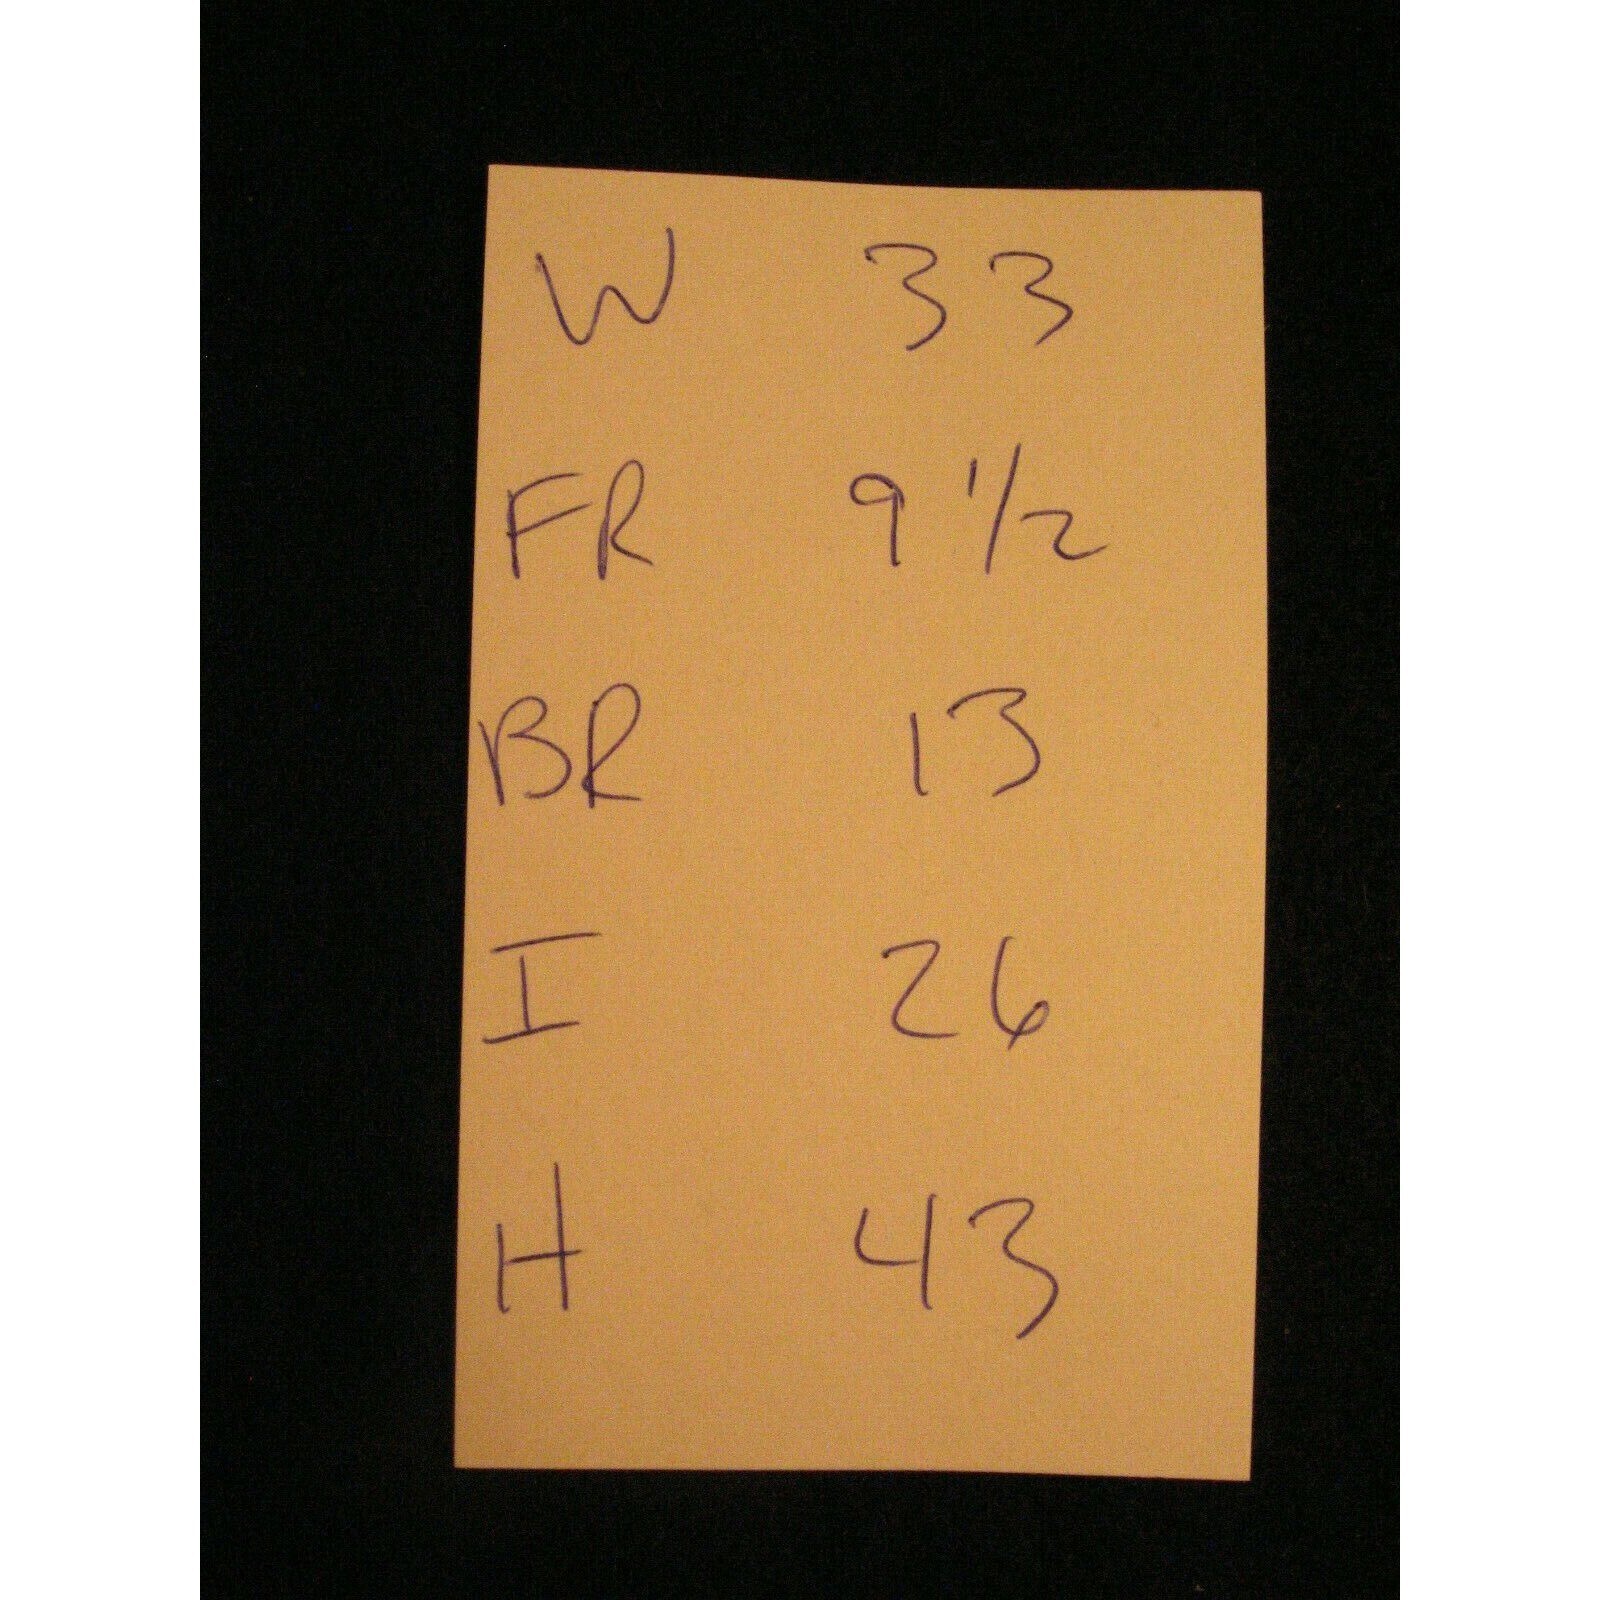 W 33
FR 9 1/2
BR 13
I 26
H 43